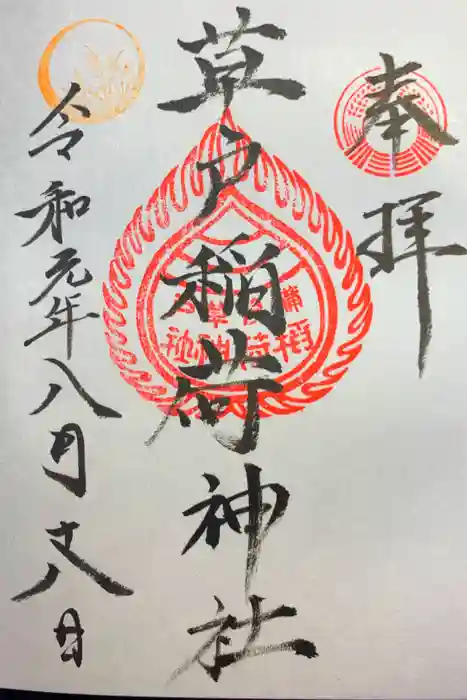 奉拝
草戸稲荷神社
稲荷神社
令和元年八月廿八日